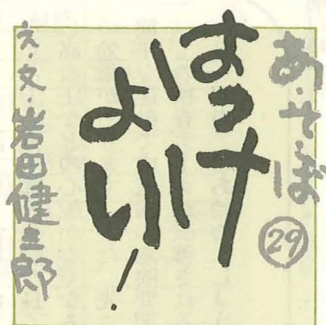 あ・そ・ば㉙
はっけ
よい!
え・文・岩田健三郎